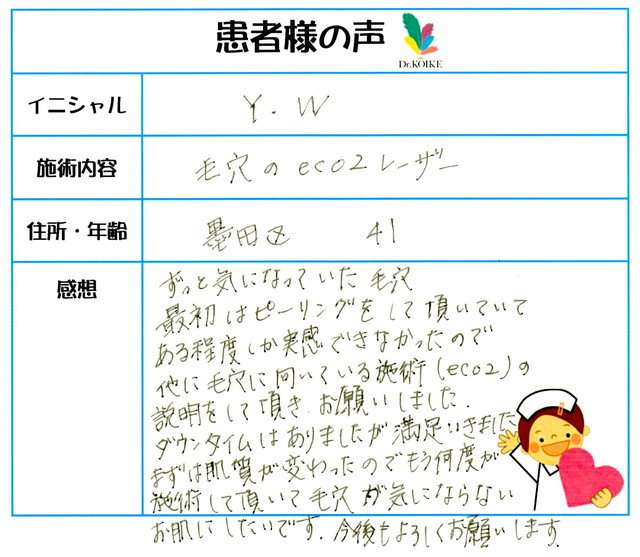 患者様の声
Dr.KOIKE
イニシャル Y.W
施術内容 毛穴のeco2レーザー
住所・年齢 墨田区 41
感想
ずっと気になっていた毛穴
最初はピーリングをして頂いていて
ある程度しか実感できなかったので
他に毛穴に向いている施術(eco2)の
説明をして頂き、お願いしました.
ダウンタイムはありましたが満足いきました
まずは肌質が変わったのでもう何度か
施術して頂いて毛穴が気にならない
お肌にしたいです.今後もよろしくお願いします.